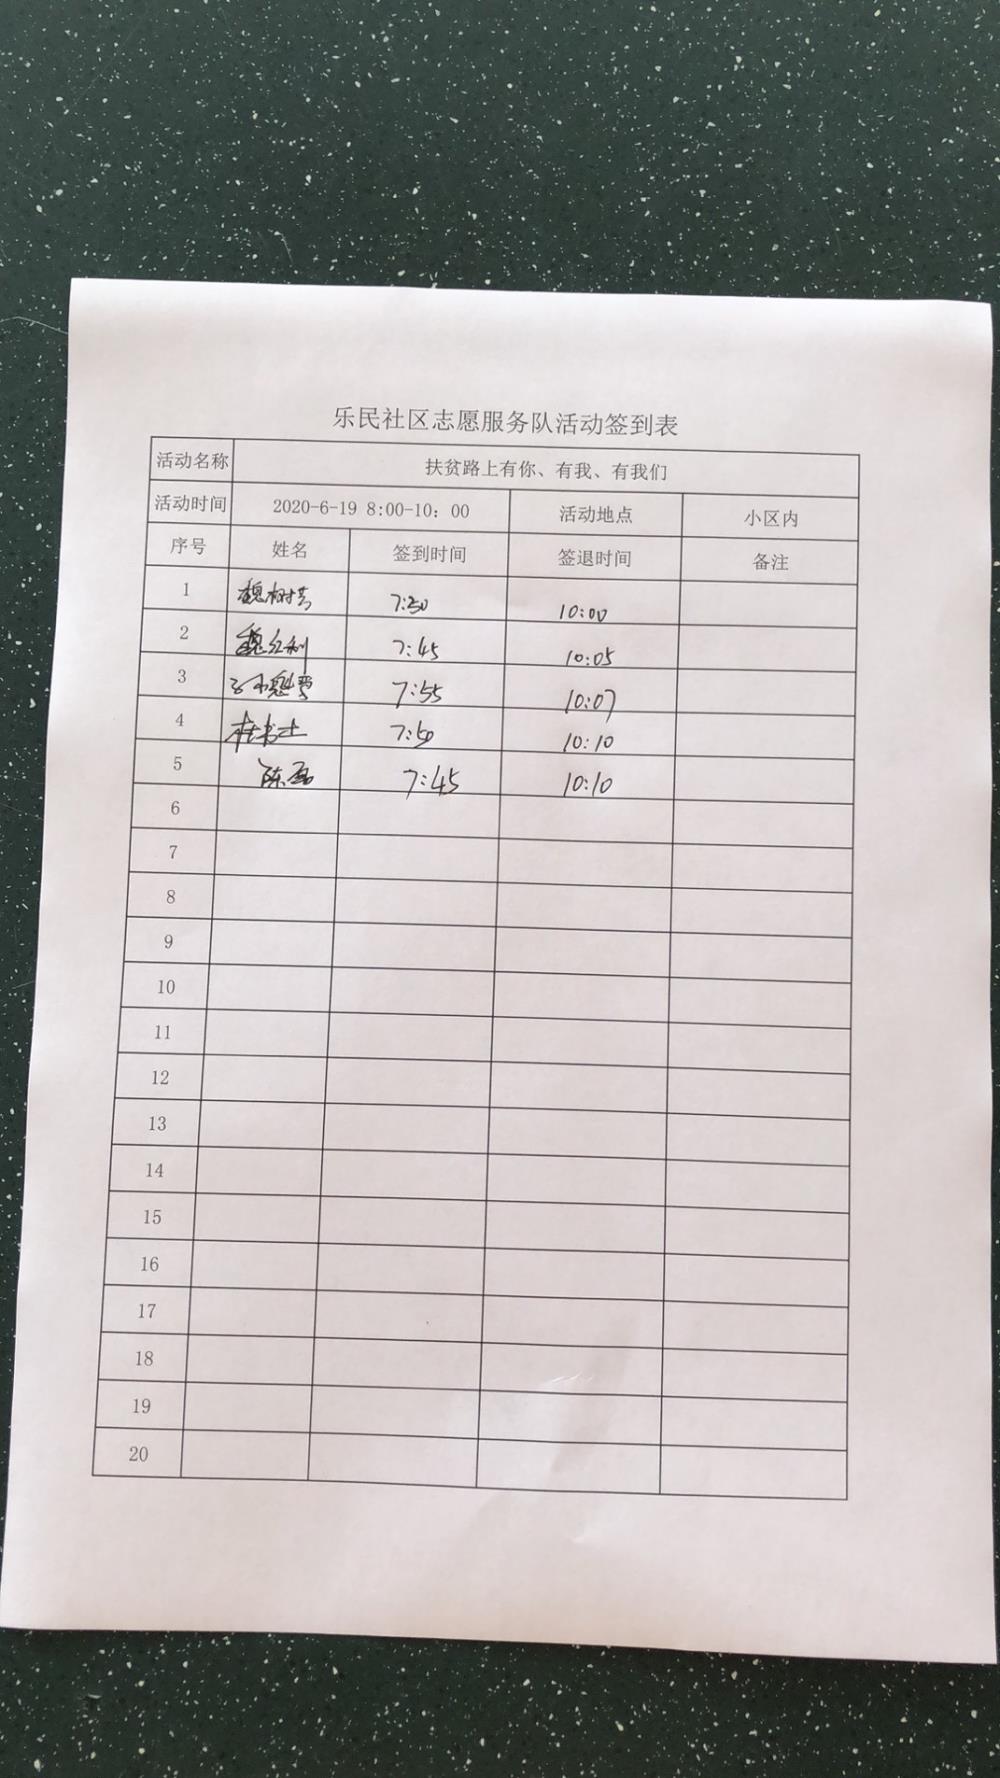 乐民社区志愿服务队活动签到表
活动名称 扶贫路上有你、有我、有我们
活动时间 2020-6-19 8:00-10：00 活动地点 小区内
序号 姓名 签到时间 签退时间 备注
1 魏树芳 7:30 10:00
2 魏红利 7:45 10:05
3 7:55 10:07
4 桂书士 7:50 10:10
5 陈磊 7:45 10:10
6
7
8
9
10
11
12
13
14
15
16
17
18
19
20